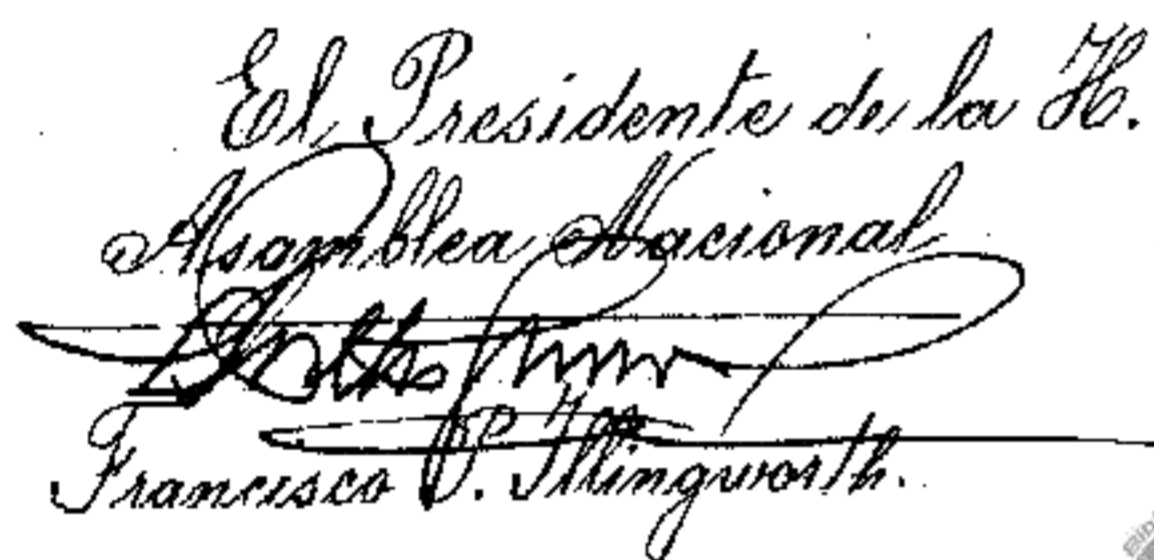 El Presidente de la H.
Asamblea Nacional
Francisco P. Illingworth.